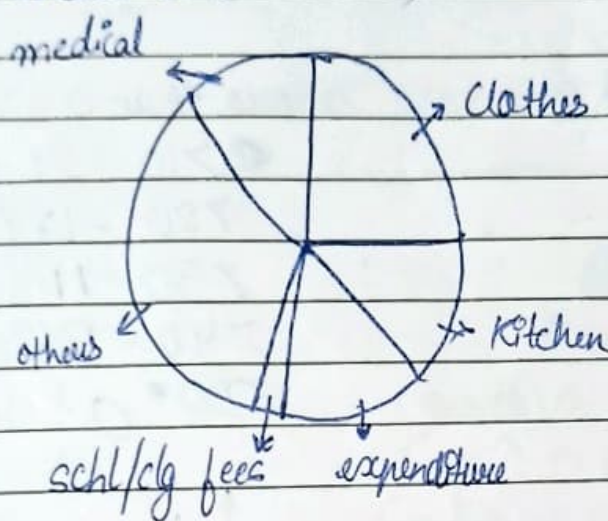 medical
Clothes
Kitchen
others
schl/clg fees
expenditure